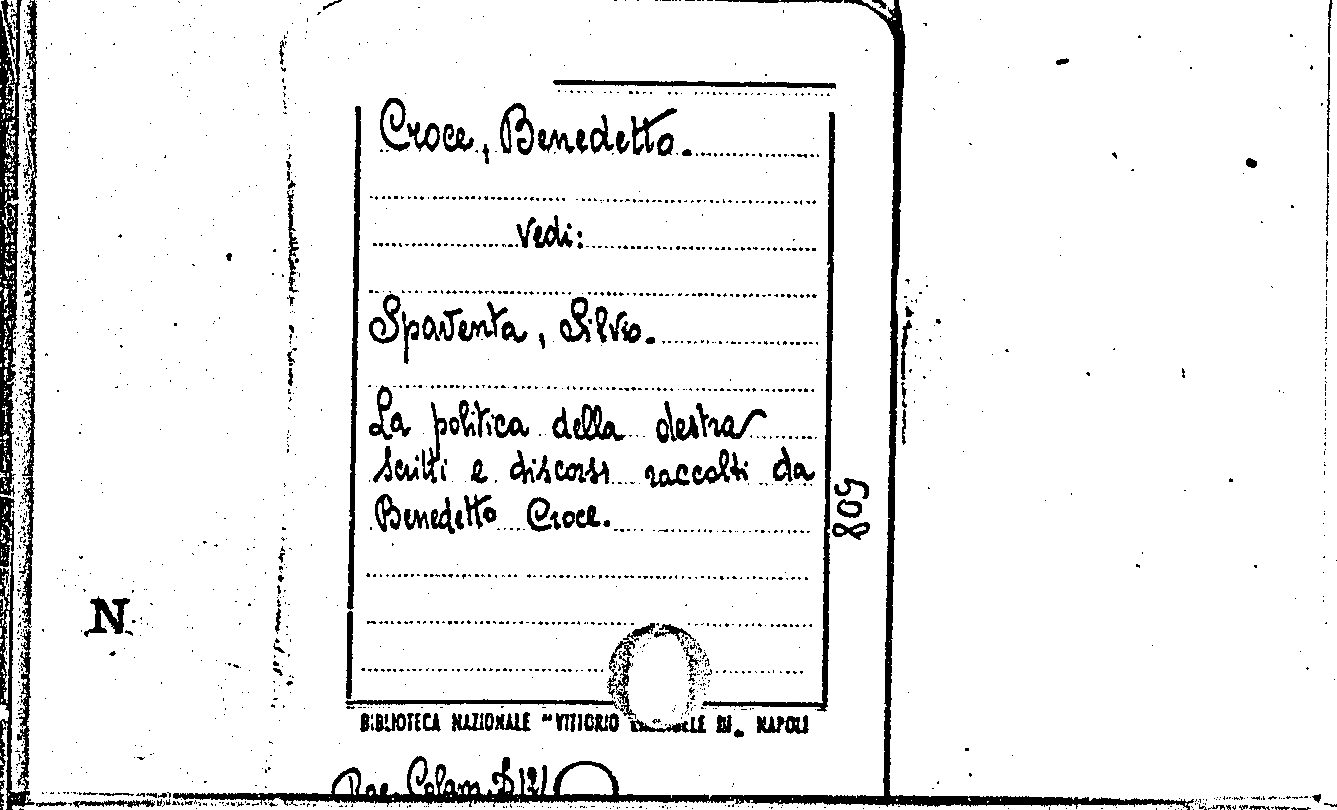 Croce, Benedetto.
Vedi:
Spaventa, Silvio.
La politica della destra
scritti e discorsi raccolti da
Benedetto Croce.
808
N
BIBLIOTECA NAZIONALE "VITTORIO III„ NAPOLI
Rac.